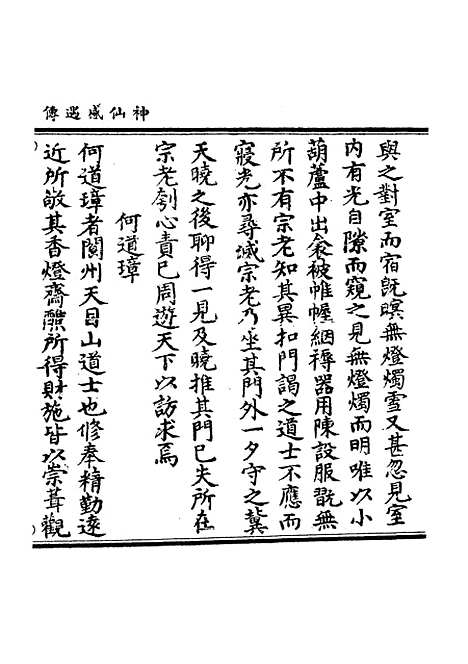 神仙感遇傳
與之對室而宿既暝無燈燭雪又甚忽見室
内有光自隙而窺之見無燈燭而明唯以小
葫蘆中出衾被帷幄裀褥器用陳設服翫無
所不有宗老知其異扣門謁之道士不應而
寢光亦尋滅宗老乃坐其門外一夕守之冀
天曉之後聊得一見及曉推其門已失所在
宗老刳心責已周遊天下以訪求焉
何道璋
何道璋者閬州天目山道士也修奉精勤遠
近所敬其香燈齋醮所得財施皆以崇葺觀